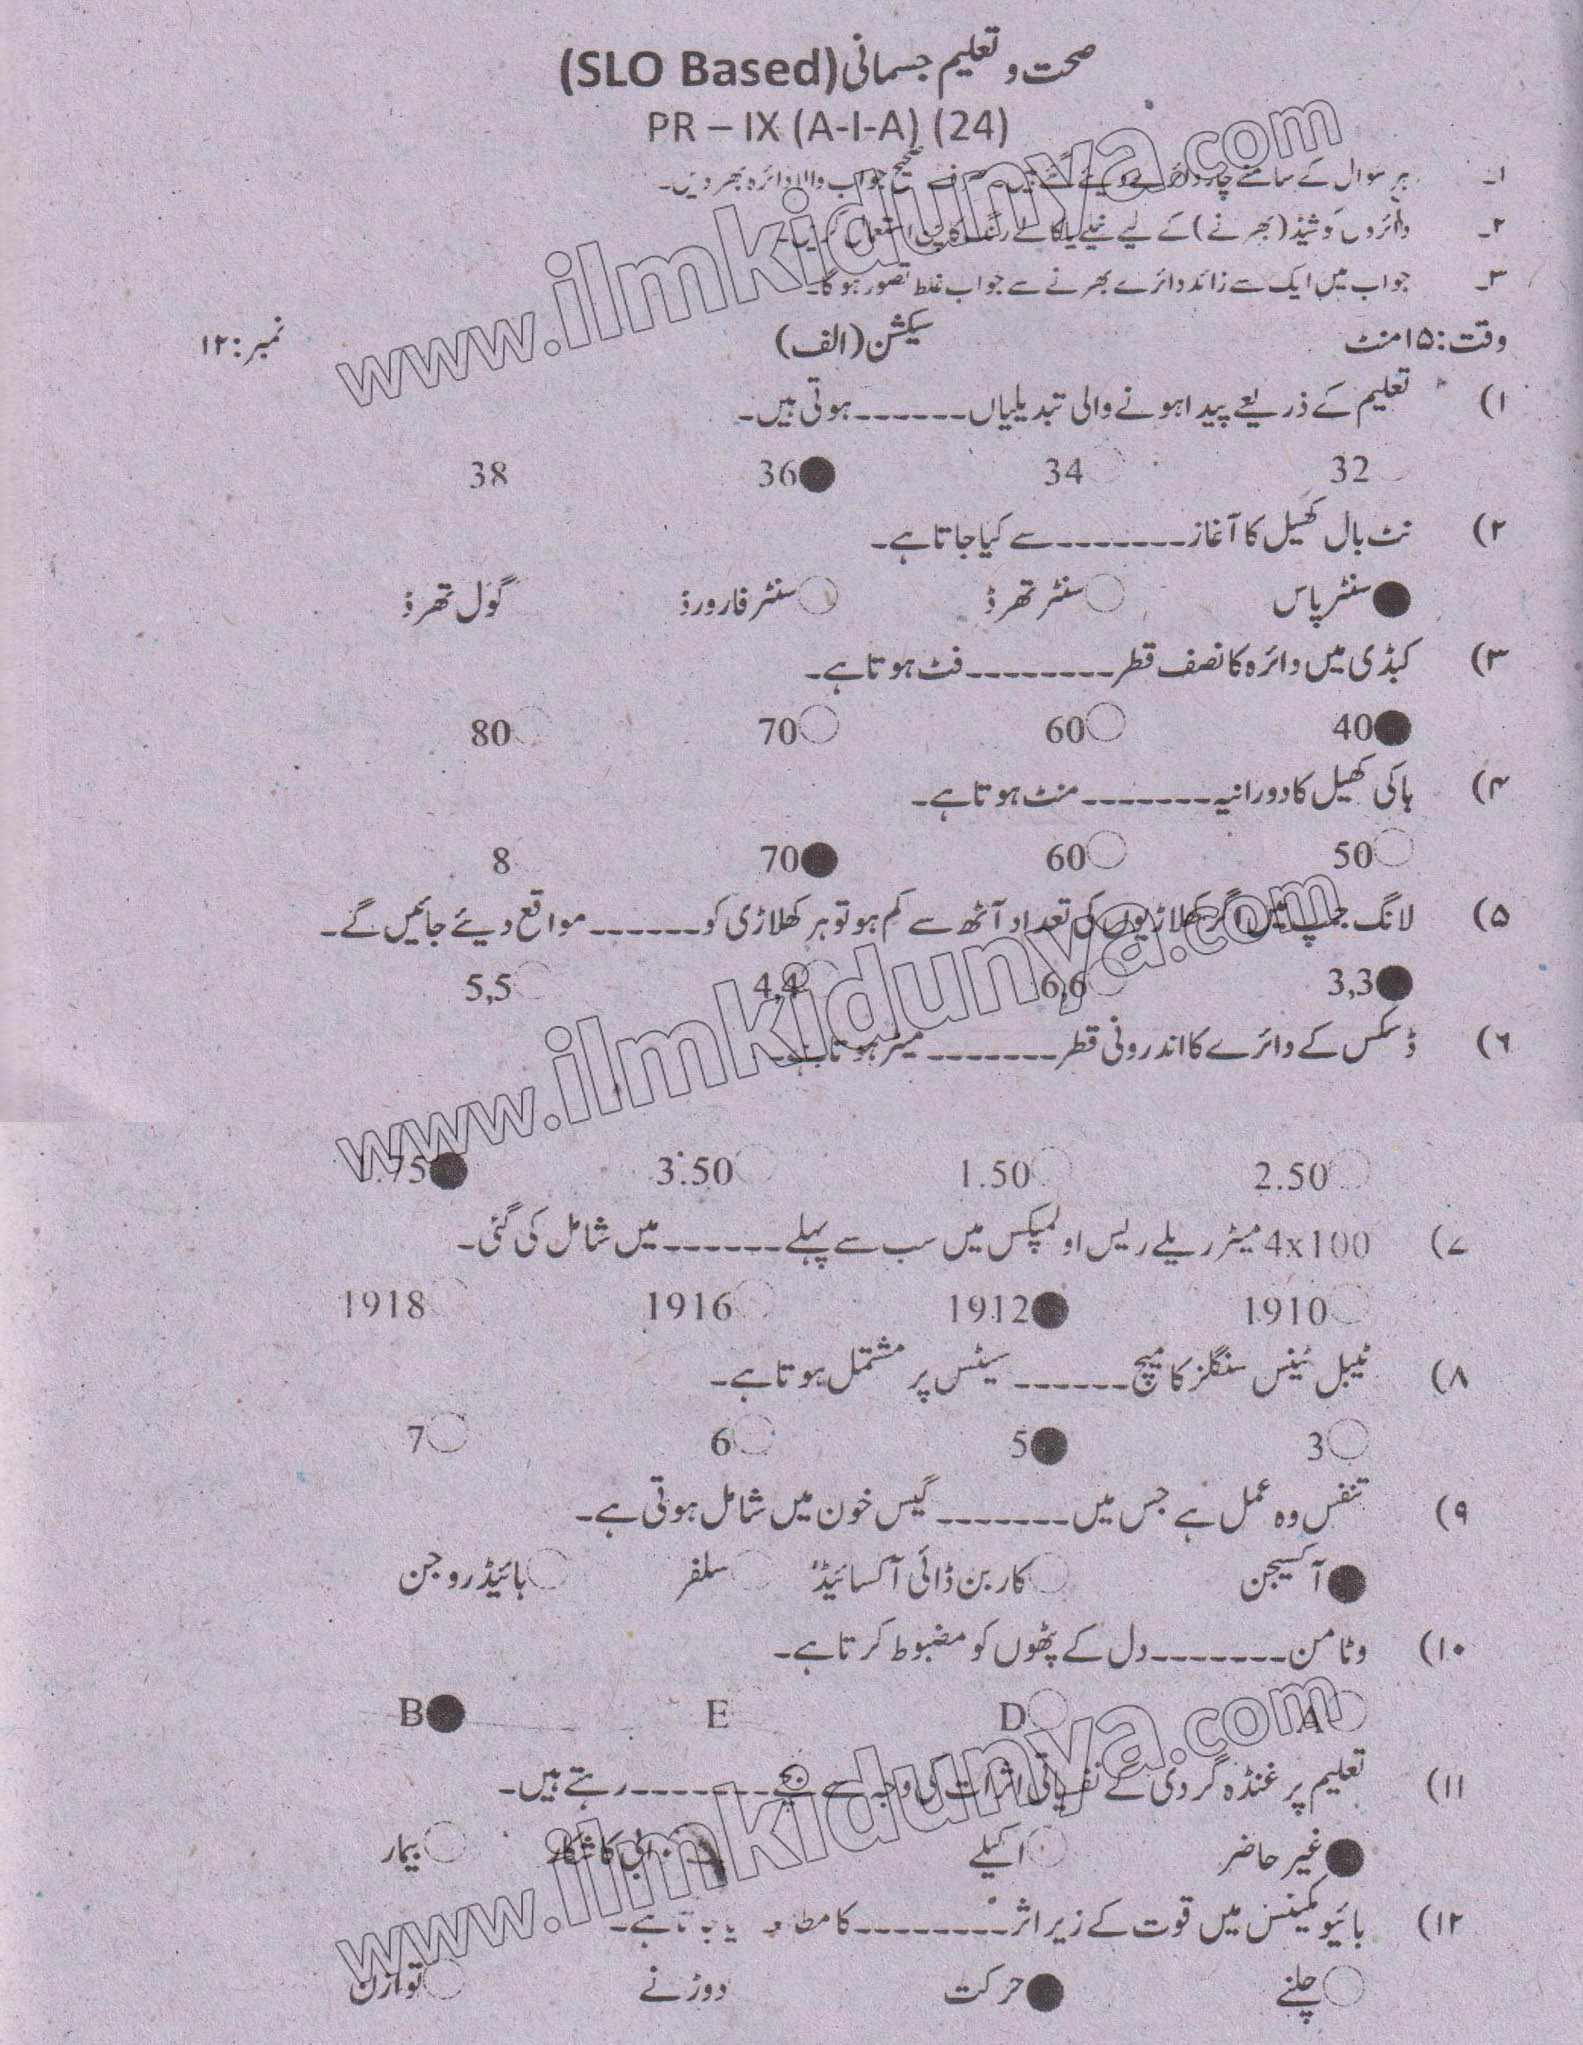 صحت و تعلیم جسمانی (SLO Based)
PR – IX (A-I-A) (24)
۱۔ ہر سوال کے سامنے چار دائرے دیئے گئے ہیں۔ صحیح جواب والا دائرہ بھر دیں۔
۲۔ دائروں کو شیڈ (بھرنے) کے لیے نیلے یا کالے رنگ کا پین استعمال کریں۔
۳۔ جواب میں ایک سے زائد دائرے بھرنے سے جواب غلط تصور ہوگا۔
وقت: ۱۵ منٹ سیکشن (الف) نمبر: ۱۲
۱) تعلیم کے ذریعے پیدا ہونے والی تبدیلیاں ------ ہوتی ہیں۔
32 34 36 38
۲) نٹ بال کھیل کا آغاز ------- سے کیا جاتا ہے۔
سنٹر پاس سنٹر تھرڈ سنٹر فارورڈ گول تھرڈ
۳) کبڈی میں دائرہ کا نصف قطر -------- فٹ ہوتا ہے۔
40 60 70 80
۴) ہاکی کھیل کا دورانیہ ------- منٹ ہوتا ہے۔
50 60 70 8
۵) لانگ جمپ میں اگر کھلاڑیوں کی تعداد آٹھ سے کم ہو تو ہر کھلاڑی کو ------ مواقع دیئے جائیں گے۔
3,3 6,6 4,4 5,5
۶) ڈسکس کے دائرے کا اندرونی قطر ------- میٹر ہوتا ہے۔
2.50 1.50 3.50 .75
۷) 4x100 میٹر ریلے ریس اولمپکس میں سب سے پہلے ------ میں شامل کی گئی۔
1910 1912 1916 1918
۸) ٹیبل ٹینس سنگلز کا میچ ------ سیٹس پر مشتمل ہوتا ہے۔
3 5 6 7
۹) تنفس وہ عمل ہے جس میں ------- گیس خون میں شامل ہوتی ہے۔
آکسیجن کاربن ڈائی آکسائیڈ سلفر ہائیڈروجن
۱۰) وٹامن ------- دل کے پٹھوں کو مضبوط کرتا ہے۔
A D E B
۱۱) تعلیم پر غنڈہ گردی کے نفسیاتی اثرات کی وجہ سے بچے -------- رہتے ہیں۔
غیر حاضر اکیلے کا شکار بیمار
۱۲) بائیو مکینکس میں قوت کے زیر اثر -------- کا ہے۔
چلنے حرکت دوڑنے توازن
www.ilmkidunya.com
www.ilmkidunya.com
www.ilmkidunya.com